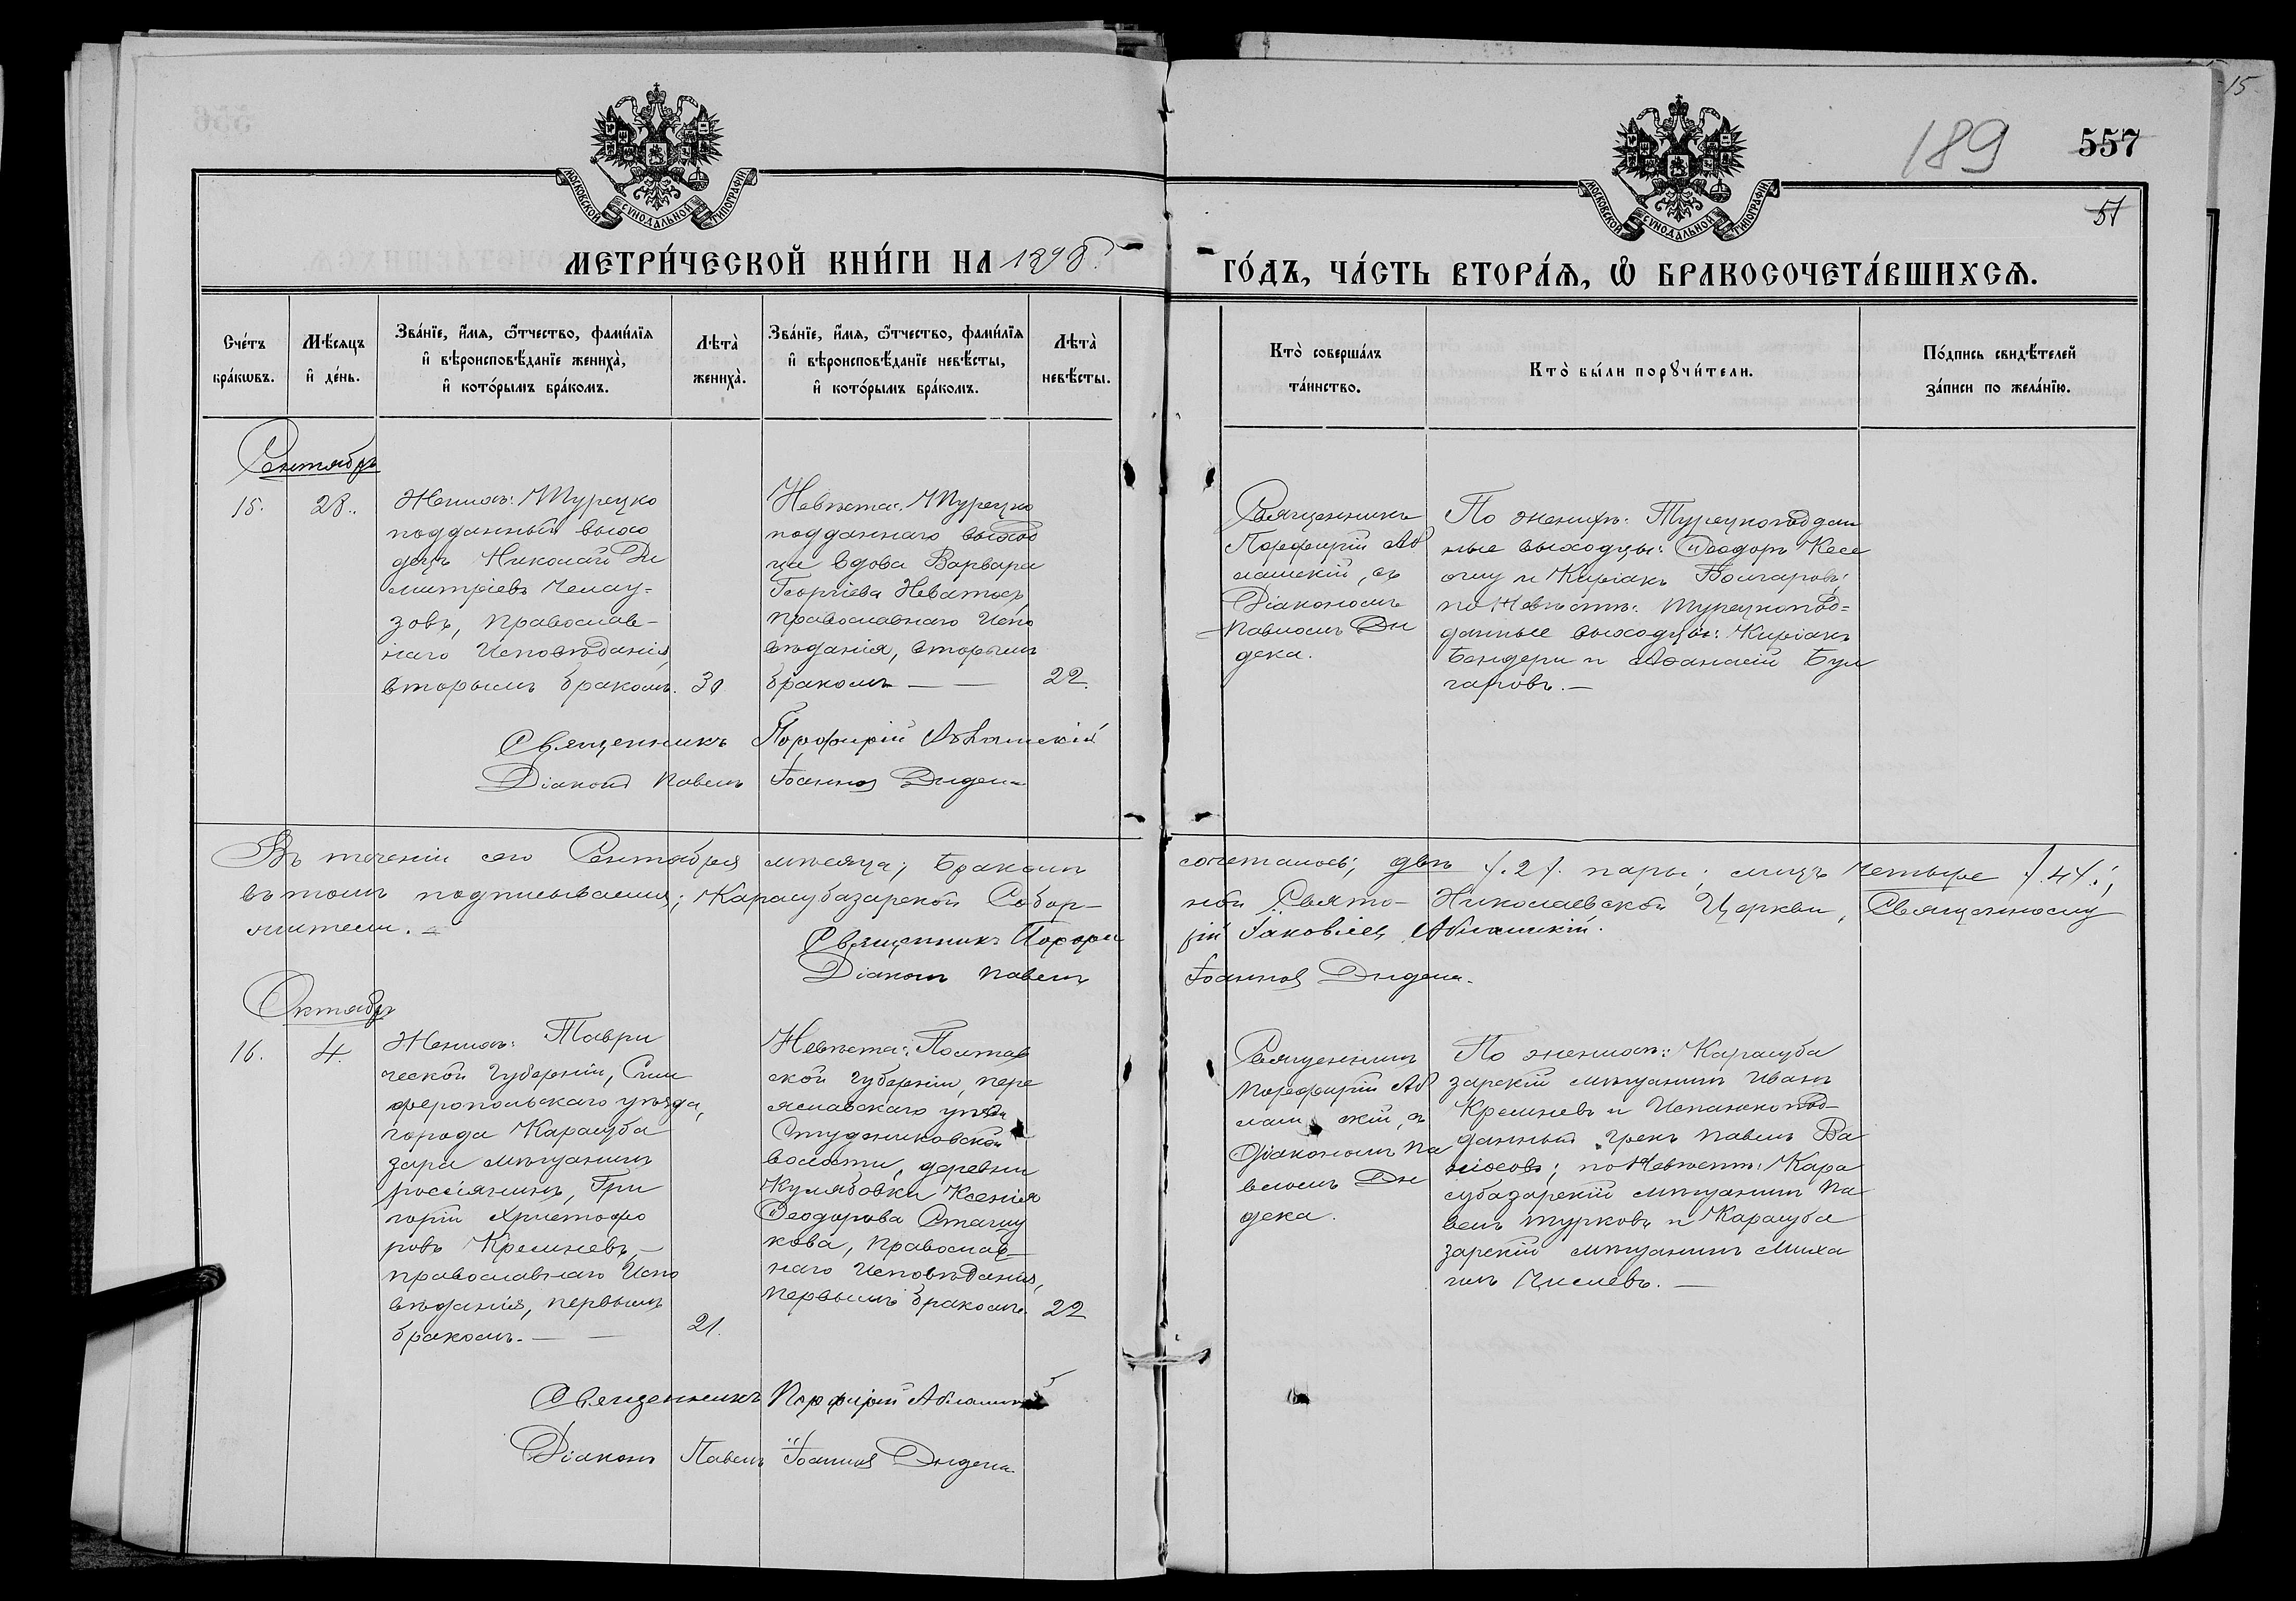 189
557
51
15
МОСКОВСКОЙ СѴНОДАЛЬНОЙ ТИПОГРАФІИ
МОСКОВСКОЙ СѴНОДАЛЬНОЙ ТИПОГРАФІИ
МЕТРИ́ЧЕСКОЙ КНИ́ГИ НА 1898 г.
ГО́ДЪ, ЧА́СТЬ ВТОРА́Ѧ, Ѡ҆ БРАКОСОЧЕТА́ВШИХСѦ.
Сче́тъ бра́кѡвъ.
Мѣ́сяцъ и҆ де́нь.
Зва́нїе, и҆́мѧ, ѻ҆́тчество, фами́лїѧ
и҆ вѣроисповѣ́данїе жениха̀,
и҆ кото́рымъ бра́комъ.
Лѣта̀ жениха̀.
Зва́нїе, и҆́мѧ, ѻ҆́тчество, фами́лїѧ
и҆ вѣроисповѣ́данїе невѣ́сты,
и҆ кото́рымъ бра́комъ.
Лѣта̀ невѣ́сты.
Кто̀ соверша́лъ та́инство.
Кто̀ бы́ли порꙋчи́тели.
По́дпись свидѣ́телей за́писи по жела́нїю.
Сентябрь
15.
28.
Женихъ: Турецко
подданный выхо
децъ Николай Ди
митріевъ Челау-
зовъ, православ-
наго Исповѣданія
вторымъ бракомъ.
30
Невѣста: Турецко
подданнаго выход
ца вдова Варвара
Георгіева
православнаго Испо
вѣданія, вторымъ
бракомъ
22.
Священникъ
Порфирій Аб
лашскій, съ
Діакономъ
Павломъ Ди
дека.
По женихѣ: Турецкоподдан
ные выходцы: Ѳеодоръ Кесе
оглу и Киріакъ Болгаровъ;
по Невѣстѣ: турецкопод=
данные выходцы: Киріакъ
Бендери и Аѳанасій Бул
гаровъ.
Священникъ Порфирій Аблашскій
Діаконъ Павелъ Іоанновъ Дидека
Въ теченіи сего Сентября мѣсяца; Бракомъ сочеталось; двѣ /.2/. пары; лицъ четыре /.4/.;
въ томъ подписываемся; Карасубазарской Собор-ной Свято-Николаевской Церкви, Священнослу
жители.
Священникъ Порфирій Іаковлевъ Аблашскій.
Діаконъ Павелъ Іоанновъ Дидека.
Октябрь
16.
4.
Женихъ: Таври
ческой Губерніи, Сим
феропольскаго уѣзда,
города Карасуба
зара мѣщанинъ
россіянинъ, Гри
горій Христофо
ровъ Кремневъ,
православнаго Испо
вѣданія, первымъ
бракомъ.
21.
Невѣста: Полтав
ской губерніи, пере
яславскаго уѣзда
Студениковской
волости, деревни
Кулябовки Ксенія
Ѳеодорова Стацу
кова, православ-
наго Исповѣданія,
первымъ бракомъ.
22
Священникъ
Порфирій Аб
лашскій, съ
Діакономъ Па
вломъ Ди
дека.
По женихѣ: Карасуба
зарскій мѣщанинъ Иванъ
Кремневъ и Испанскопод-
данный грекъ Павелъ Ва
; по Невѣстѣ: Кара
субазарскій мѣщанинъ Па
велъ Турковъ и Карасуба
зарскій мѣщанинъ Миха
илъ
Священникъ Порфирій Аблашскій
Діаконъ Павелъ Іоанновъ Дидека